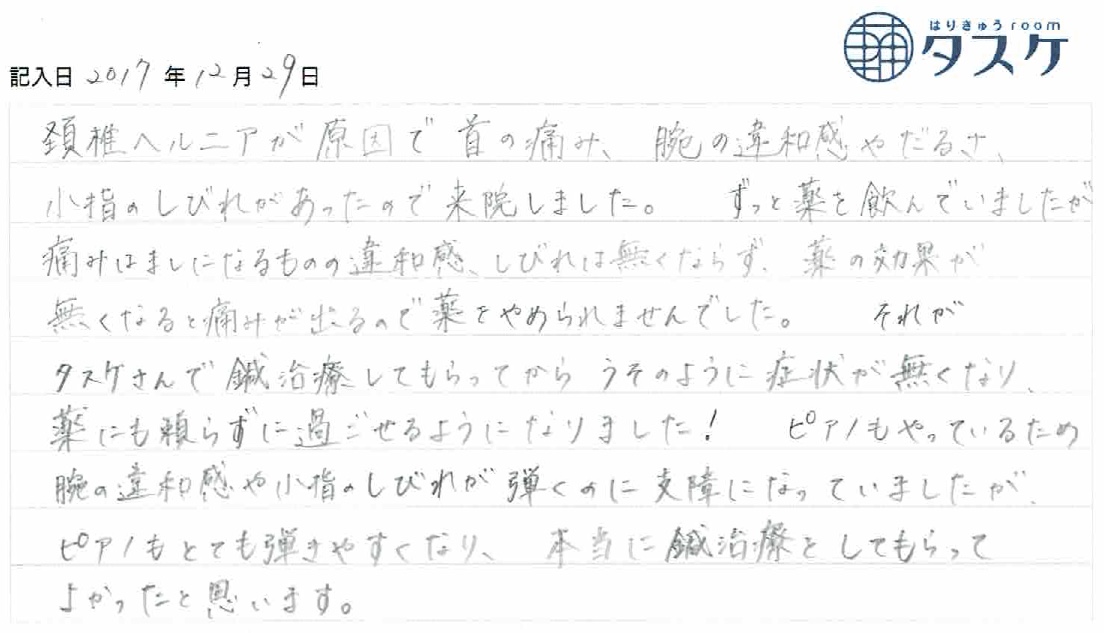 はりきゅうroom
タスケ
記入日 2017 年 12 月 29 日
頚椎ヘルニアが原因で首の痛み、腕の違和感やだるさ、
小指のしびれがあったので来院しました。 ずっと薬を飲んでいましたが
痛みはましになるものの違和感、しびれは無くならず、薬の効果が
無くなると痛みが出るので薬をやめられませんでした。 それが
タスケさんで鍼治療してもらってから うそのように症状が無くなり、
薬にも頼らずに過ごせるようになりました! ピアノもやっているため
腕の違和感や小指のしびれが弾くのに支障になっていましたが、
ピアノもとても弾きやすくなり、 本当に鍼治療をしてもらって
よかったと思います。